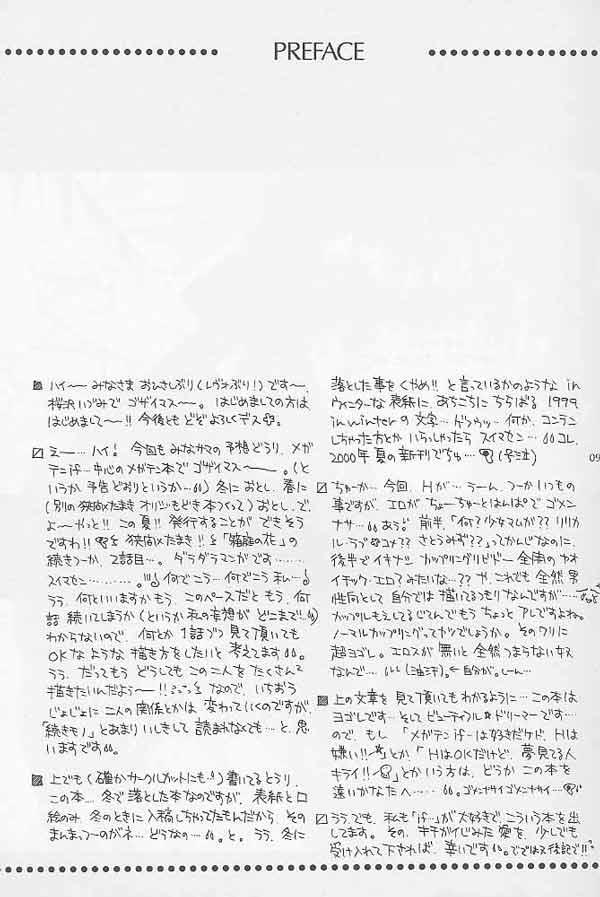 PREFACE
ハイ〜 みなさま おひさしぶり(レヴォぶり!)です〜、
桜沢いづみで ゴザイマス〜。はじめましての方は、
はじめまして〜!! 今後とも どぞよろしくデス。
えー… ハイ! 今回も みなサマの 予想どうり、メガ
テンif…中心の メガテン本で ゴザイマス〜。(と
いうか 予告どおりというか…) 冬に おとし、春に
(別の 狭間×たまき オリジもどき本つくって) おとし、で、
よ〜やっと!! この夏!! 発行することが できそう
ですわ!! 狭間×たまき!! 「箱庭の花」の
続きつーか、2話目…。ダラダラマンガです……
スイマセン…………。 何でこう… 何でこう 私…
うう、何といいますかもう、このペースだと もう、何
話 続いてしまうか (というか 私の妄想が どこまで…)
わからないので、何とか 1話ずつ 見て頂いても
OKな ような 描き方をしたいと 考えてます。
うう、だってもう どうしても この二人を たくさん
描きたいんだよう〜!! なので、いちおう
じょじょに 二人の関係とかは 変わっていくのですが、
「続きもの」とあまり いしきして 読まれなくても… と、思
いますです。
上でも (確かサークルカットにも) 書いてるとうり、
この本… 冬で 落とした 本なのですが、表紙と口
絵のみ 冬のときに 入稿しちゃってたもんだから、その
まんまつーのがネ… どうなの…。と。うう、冬に
落とした事を くやめ!! と 言っているかのような in
ウィンターな 表紙に、あちこちに ちらばる 1999
in winterの 文字… 何か、コンラン
しちゃった方とか いらっしゃったら スイマセン… コレ、
2000年 夏の 新刊でちゅ…
ちゅーか… 今回、Hが… うーん、つーか いつもの
事ですが、エロが ちょーちゅーとはんぱで ゴメン
ナサ… 前半、「何? 少女マンガ?? リリカ
ル・ラブ
さとうみず??」ってかんじなのに、
後半で イキナリ カップリングリビドー 全開の ヤオ
イチック・エロ? みたいな…?? や、これでも 全然 男
性向として 自分では 描いてるつもりなんですが……
カップルもえしてるじてんで もうちょっと アレですよね。
ノーマルカップリングってヤツでしょうか。そのワリに
超ヨゴレ。エロスが 無いと 全然 つまらない女
なんで… 自分が。しーん…
上の文章を 見て頂いても わかるように… この本は
ヨゴレです… そして ビューティフル☆ドリーマーです…
ので、もし 「メガテンifは 好きだケド、Hは
嫌い!!」とか 「HはOKだけど、夢見てる人
キライ!!」とかいう方は、どうか この本を
遠いかなたへ…… ゴメンナサイゴメンナサイ…
うう、でも、私も「if…」が 大好きで、こういう本を 出
してます。その、キチガイじみた 愛を、少しでも
受け入れて下されば、幸いです。ではでは 後記で!!
09